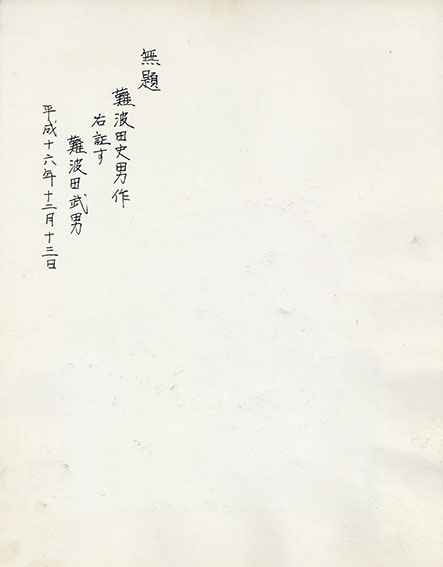 無題
難波田史男作
右証す
難波田武男
平成十六年十二月十三日